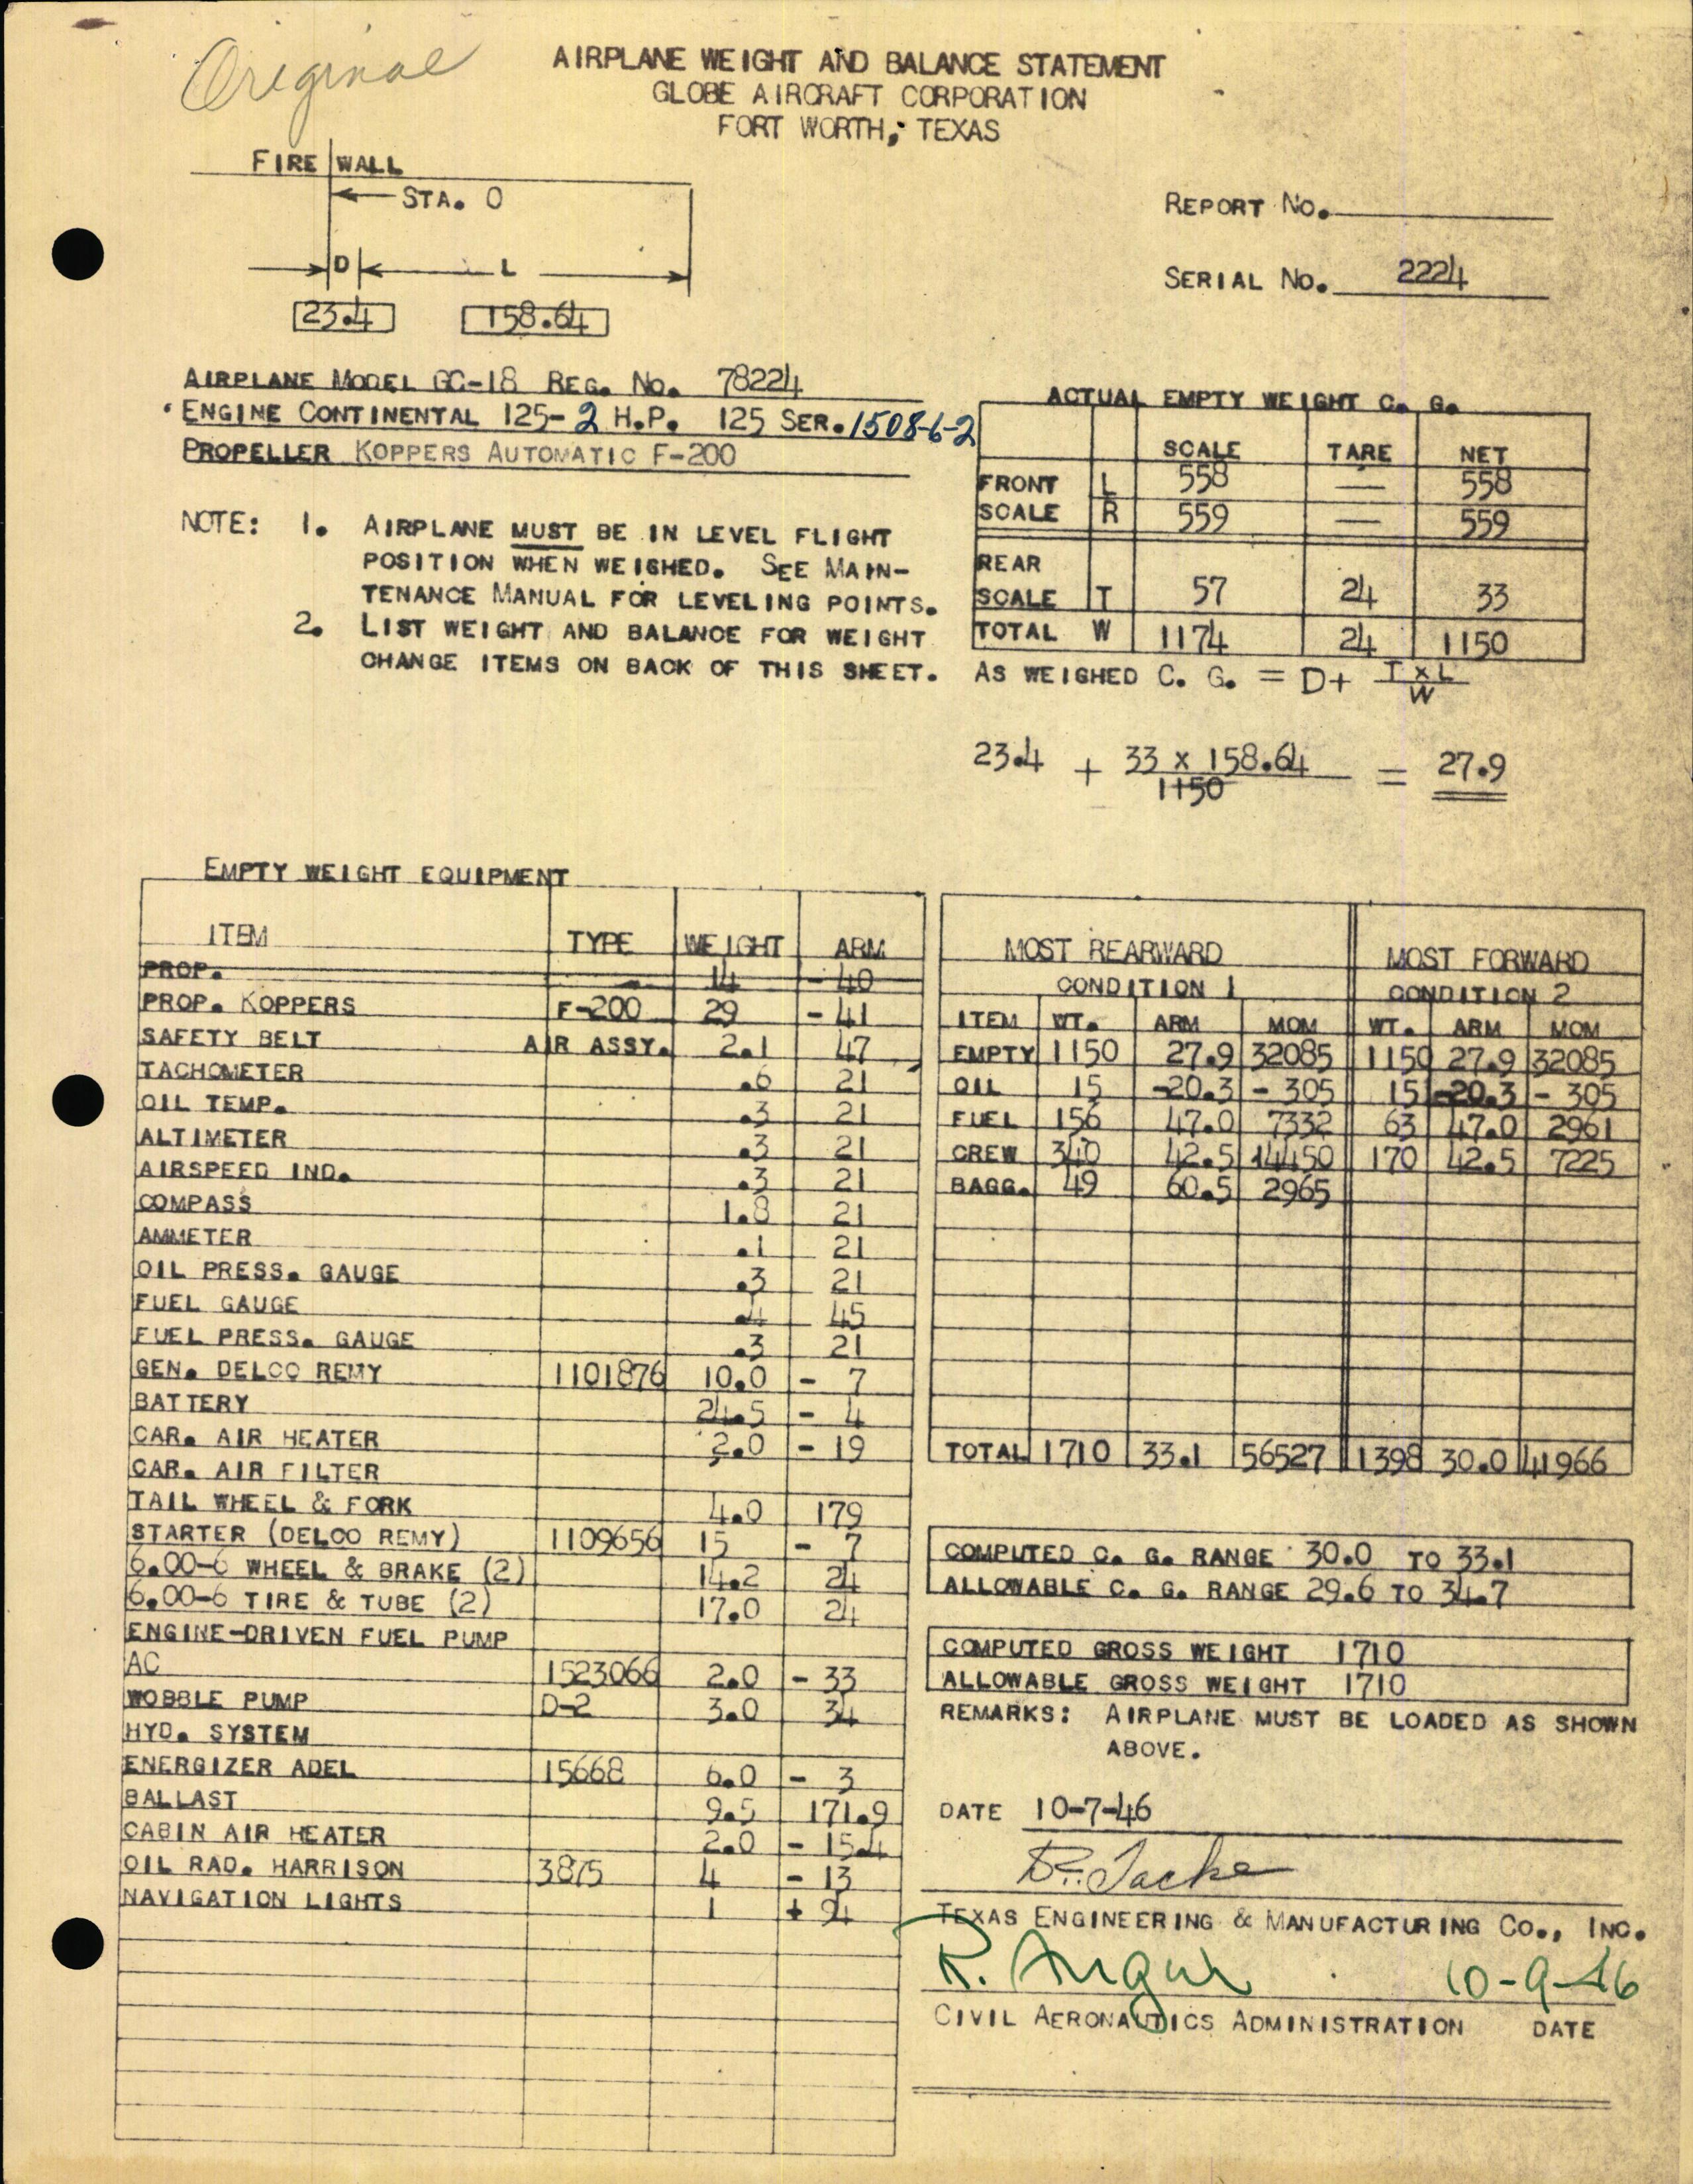 Original
AIRPLANE WEIGHT AND BALANCE STATEMENT
GLOBE AIRCRAFT CORPORATION
FORT WORTH, TEXAS
FIRE WALL
STA. 0
D L
23.4 158.64
REPORT NO.
SERIAL NO. 2224
AIRPLANE MODEL GC-18 REG. NO. 78224
ENGINE CONTINENTAL 125-2 H.P. 125 SER. 1508-6-2
PROPELLER KOPPERS AUTOMATIC F-200
NOTE: 1. AIRPLANE MUST BE IN LEVEL FLIGHT
POSITION WHEN WEIGHED. SEE MAIN-
TENANCE MANUAL FOR LEVELING POINTS.
2. LIST WEIGHT AND BALANCE FOR WEIGHT
CHANGE ITEMS ON BACK OF THIS SHEET.
ACTUAL EMPTY WEIGHT C. G.
SCALE TARE NET
FRONT L 558 — 558
SCALE R 559 — 559
REAR
SCALE T 57 24 33
TOTAL W 1174 24 1150
AS WEIGHED C. G. = D+ T x L
W
23.4 + 33 x 158.64 = 27.9
1150
EMPTY WEIGHT EQUIPMENT
ITEM TYPE WEIGHT ARM
PROP. 14 - 40
PROP. KOPPERS F-200 29 - 41
SAFETY BELT AIR ASSY. 2.1 47
TACHOMETER .6 21
OIL TEMP. .3 21
ALTIMETER .3 21
AIRSPEED IND. .3 21
COMPASS 1.8 21
AMMETER .1 21
OIL PRESS. GAUGE .3 21
FUEL GAUGE .4 45
FUEL PRESS. GAUGE .3 21
GEN. DELCO REMY 1101876 10.0 - 7
BATTERY 24.5 - 4
CAR. AIR HEATER 2.0 - 19
CAR. AIR FILTER
TAIL WHEEL & FORK 4.0 179
STARTER (DELCO REMY) 1109656 15 - 7
6.00-6 WHEEL & BRAKE (2) 14.2 24
6.00-6 TIRE & TUBE (2) 17.0 24
ENGINE-DRIVEN FUEL PUMP
AC 1523066 2.0 - 33
WOBBLE PUMP D-2 3.0 34
HYD. SYSTEM
ENERGIZER ADEL 15668 6.0 - 3
BALLAST 9.5 171.9
CABIN AIR HEATER 2.0 - 15.4
OIL RAD. HARRISON 3875 4 - 13
NAVIGATION LIGHTS 1 + 94
MOST REARWARD MOST FORWARD
CONDITION 1 CONDITION 2
ITEM WT. ARM MOM WT. ARM MOM
EMPTY 1150 27.9 32085 1150 27.9 32085
OIL 15 -20.3 - 305 15 -20.3 - 305
FUEL 156 47.0 7332 63 47.0 2961
CREW 340 42.5 14450 170 42.5 7225
BAGG. 49 60.5 2965
TOTAL 1710 33.1 56527 1398 30.0 41966
COMPUTED C. G. RANGE 30.0 TO 33.1
ALLOWABLE C. G. RANGE 29.6 TO 34.7
COMPUTED GROSS WEIGHT 1710
ALLOWABLE GROSS WEIGHT 1710
REMARKS: AIRPLANE MUST BE LOADED AS SHOWN
ABOVE.
DATE 10-7-46
TEXAS ENGINEERING & MANUFACTURING CO., INC.
10-9-46
CIVIL AERONAUTICS ADMINISTRATION DATE